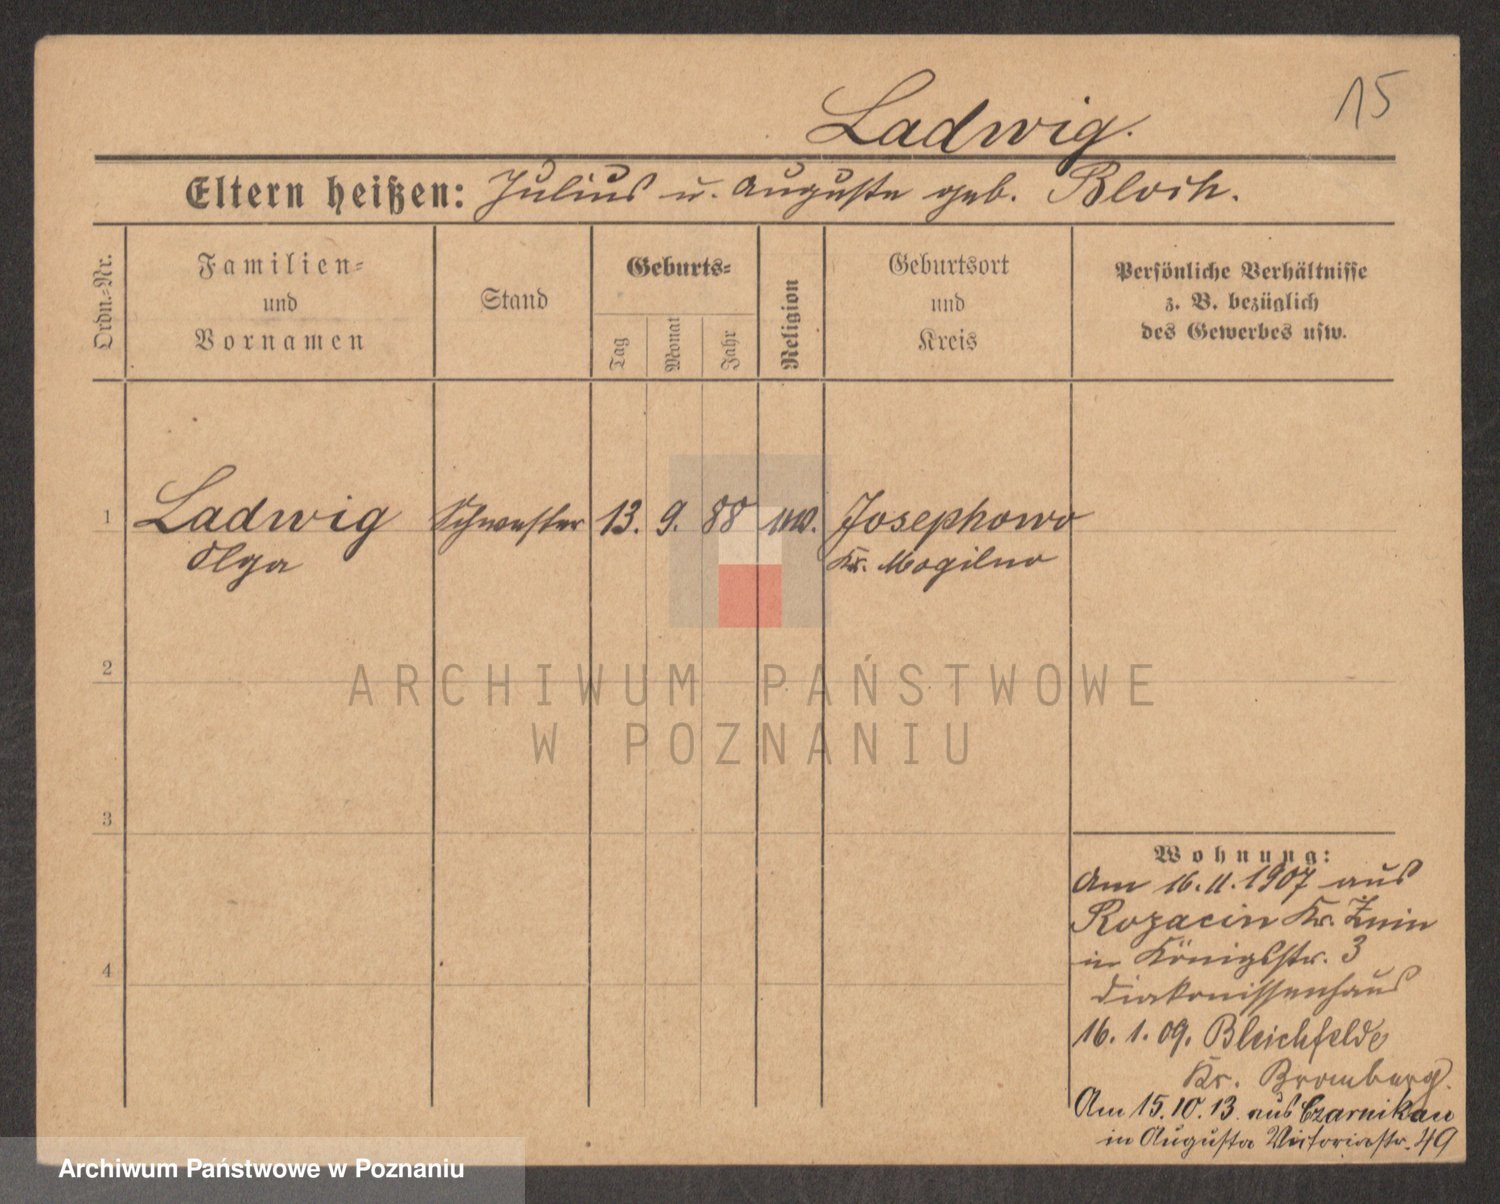 15
Ladwig.
Eltern heißen: Julius u. Auguste geb. Bloch.
Ordn.-Nr.
Familien-
und
Vornamen
Stand
Geburts-
Tag
Monat
Jahr
Religion
Geburtsort
und
Kreis
Persönliche Verhältnisse
z. B. bezüglich
des Gewerbes usw.
1 Ladwig Schwester 13. 9. 88 Josephowo
Olga Kr. Mogilno
2
ARCHIWUM PAŃSTWOWE
W POZNANIU
3
Wohnung:
Am 16.11.1907 aus
Rozacin Kr. Znin
in Königsstr. 3
Diakonissenhaus
4
16. 1. 09. Bleichfelde
Kr. Bromberg.
Am 15.10.13 aus Czarnikau
in Augusta Victoriastr. 49
Archiwum Państwowe w Poznaniu